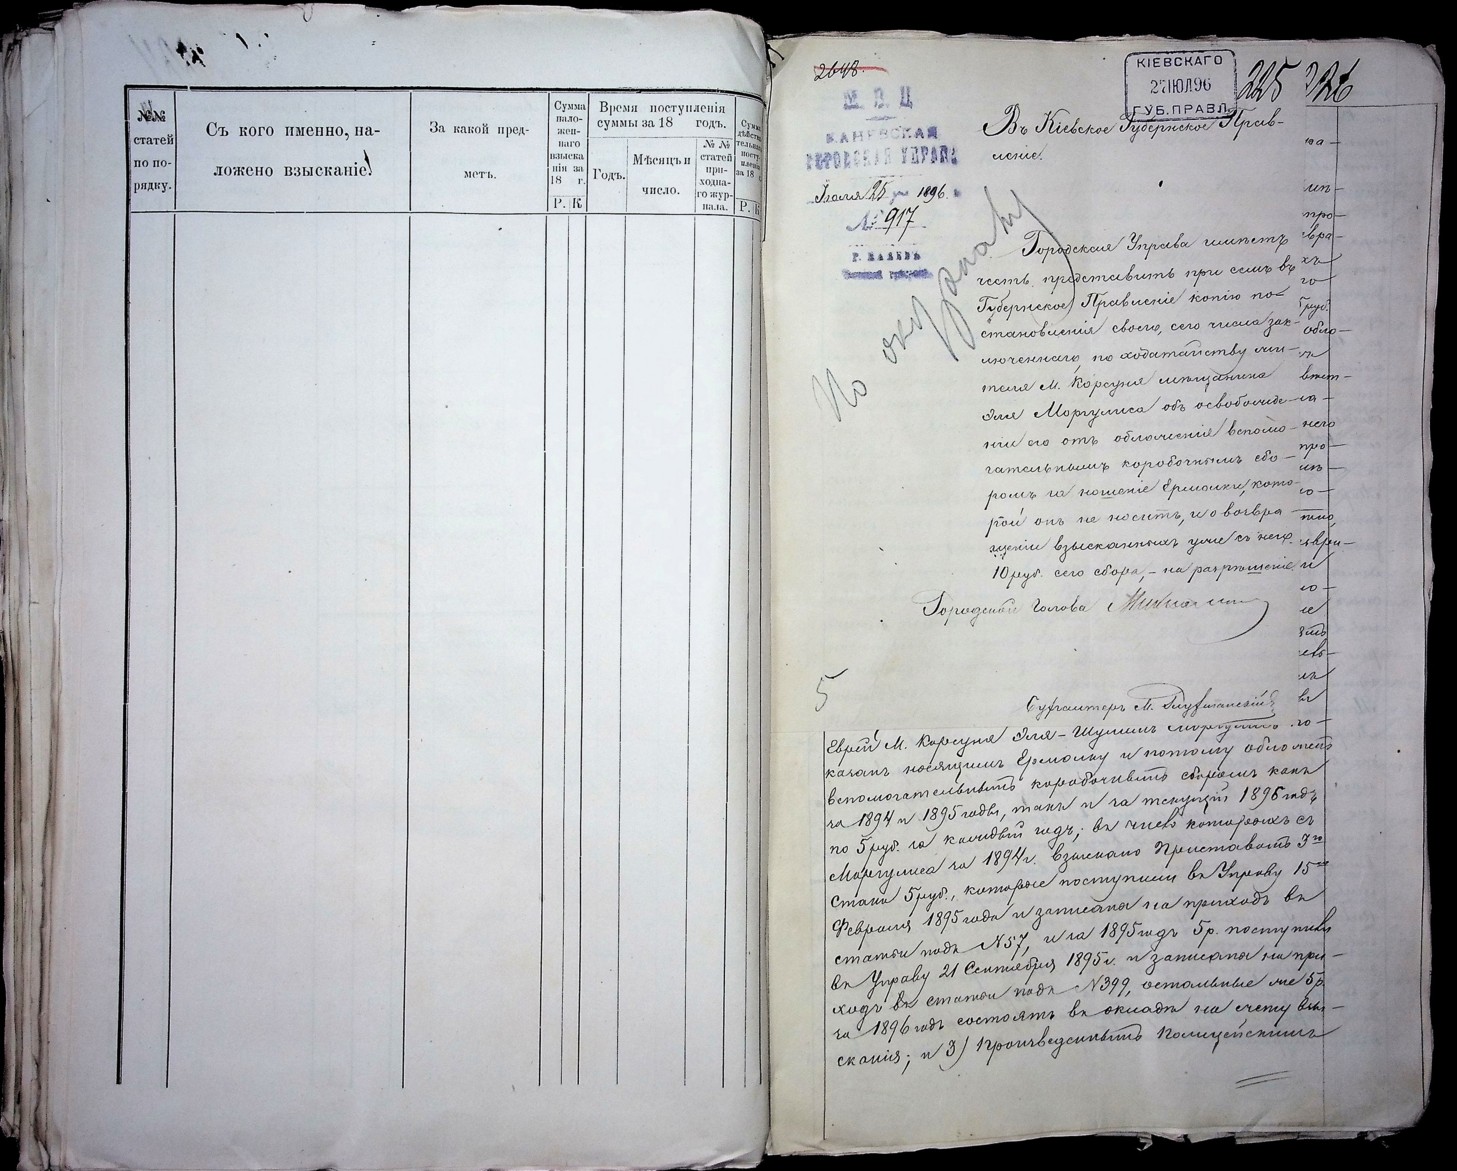 №№
статей
по по-
рядку.
Съ кого именно, на-
ложено взысканіе.
За какой пред-
метъ.
Сумма
нало-
жен-
наго
взыска
нія за
18 г.
Р. К
Время поступленія
суммы за 18 годъ.
Годъ.
Мѣсяцъ и
число.
№ №
статей
при-
ходна-
го жур-
нала.
Сумма
дѣйстви
тельно
посту-
пленія
за 18 г.
Р. К
2648
КІЕВСКАГО
27 ІЮЛ 96
ГУБ. ПРАВЛ.
225 226
М. В. Д
КАНЕВСКАЯ
ГОРОДСКАЯ УПРАВА
Іюля 25 дня 1896 г.
№ 917
Г. КАНЕВЪ
Кіевской губерніи.
Въ Кіевское Губернское Прав-
леніе.
Городская Управа имѣетъ
честь представить при семъ въ
Губернское Правленіе копію по-
становленія своего, сего числа зак-
люченнаго, по ходатайству жи-
теля М. Корсуня мѣщанина
Эля Моргулиса объ освобожде-
ніи его отъ обложенія вспомо-
гательнымъ коробочнымъ сбо-
ромъ за ношеніе Ермолки, кото-
рой онъ не носитъ, и о возвра-
щеніи взысканныхъ уже съ него
10 руб. сего сбора, – на разрѣшеніе
Городской Голова
Бухгалтеръ М.
5
Еврей М. Корсуня Эля-Шулимъ Моргулисъ
казанъ носящимъ Ермолку и потому обложенъ
вспомогательнымъ коробочнымъ сборомъ какъ
за 1894 и 1895 годы, такъ и за текущій 1896 годъ
по 5 руб. за каждый годъ; въ число которыхъ съ
Моргулиса за 1894 г. взыскано Приставомъ 3го
Стана 5 руб., которые поступили въ Управу 15го
Февраля 1895 года и записаны на приходъ въ
статьи подъ №57, и за 1895 годъ 5 р. поступили
въ Управу 21 Сентября 1895 г. и записаны на при-
ходъ въ статьи подъ №399, остальные же 5 р.
за 1896 годъ состоятъ въ окладѣ на счету взы-
сканія; и 3) произведеннымъ Полицейскимъ